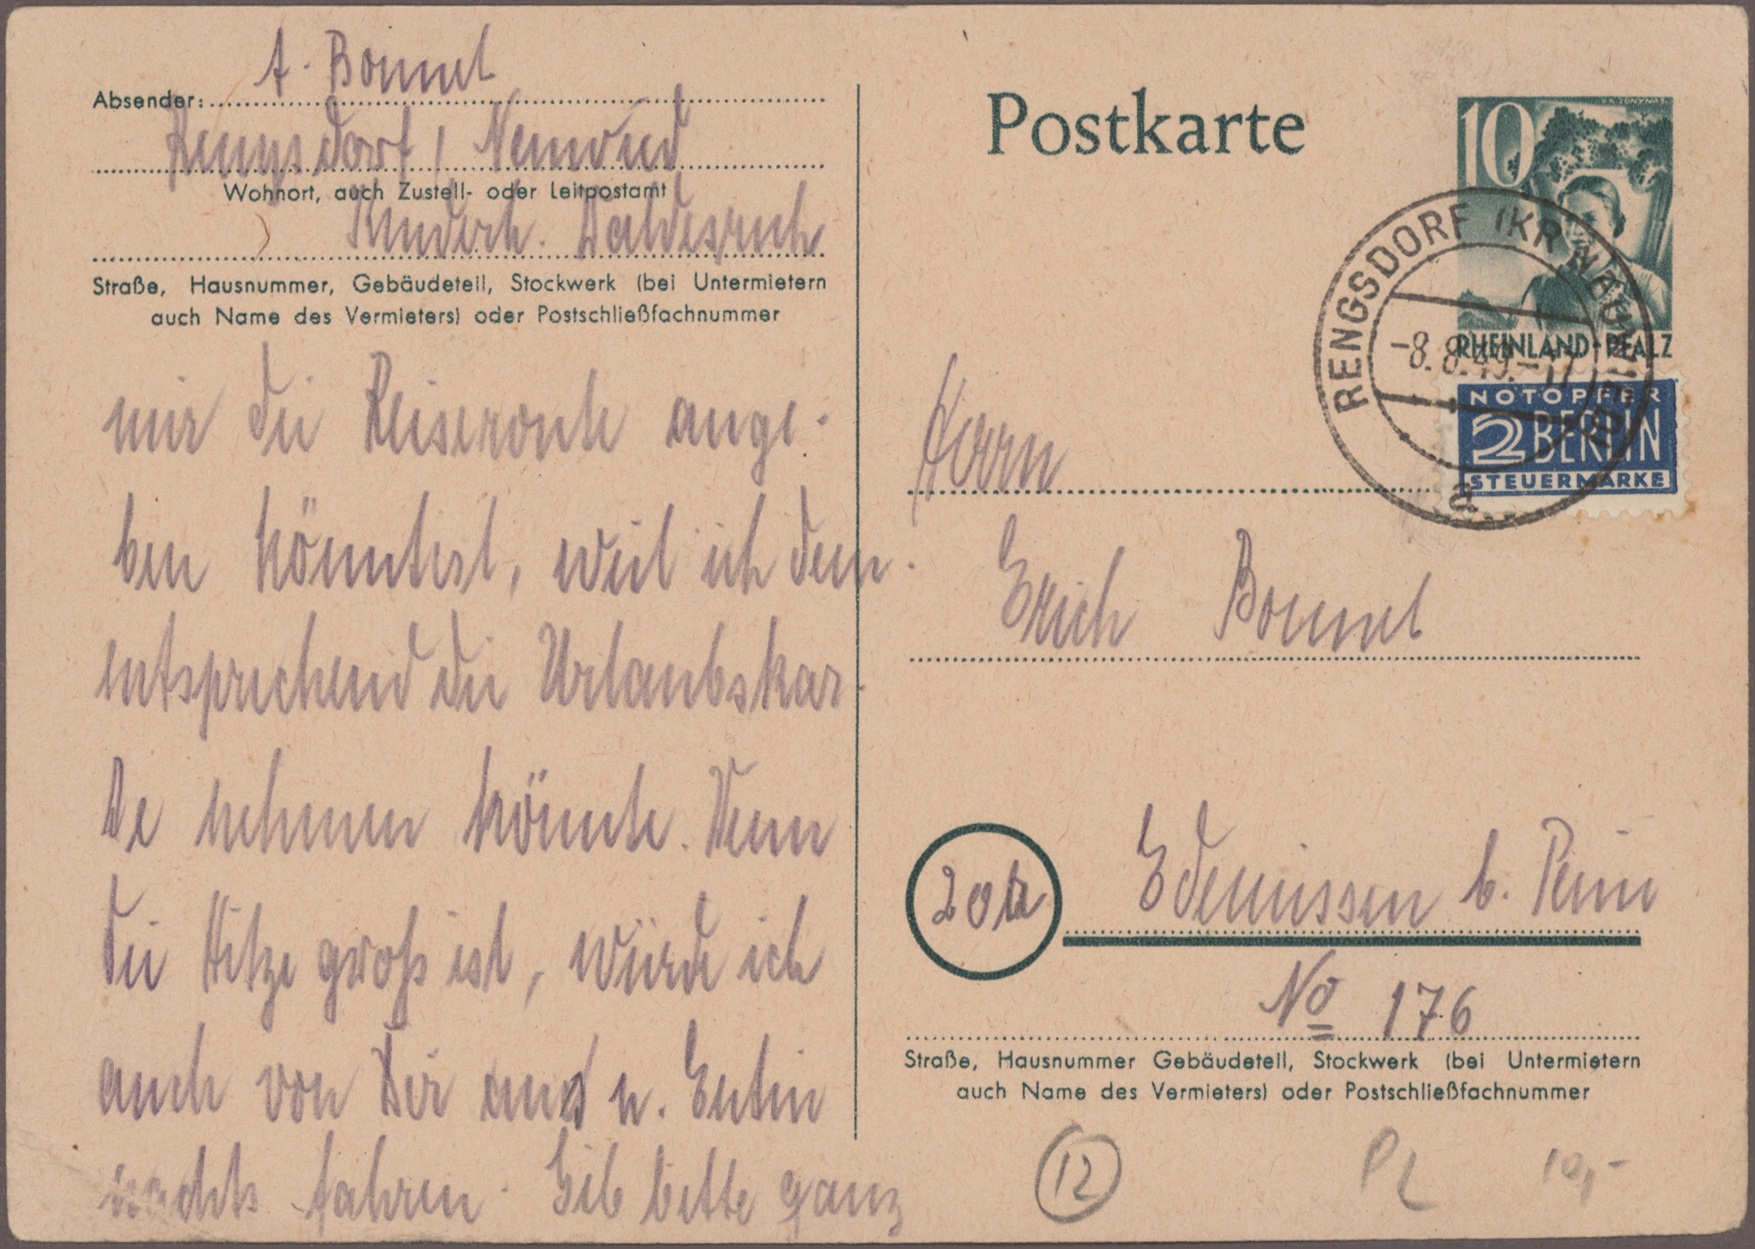 A. Bonnet
Absender:
Rengsdorf / Neuwied
Wohnort, auch Zustell- oder Leitpostamt
Kinderh. Waldesruh
Straße, Hausnummer, Gebäudeteil, Stockwerk (bei Untermietern
auch Name des Vermieters) oder Postschließfachnummer
mir die Reiseroute ange-
ben könntest, weil ich dem-
entsprechend die Urlaubskar-
te nehmen könnte. Wenn
die Hitze groß ist, würde ich
auch von Dir aus n. Eutin
nachts fahren. Gib bitte ganz
Postkarte
10
RHEINLAND-PFALZ
RENGSDORF (KR NEUWIED)
-8.8.49.-17
a
NOTOPFER
2 BERLIN
STEUERMARKE
Herrn
Erich Bonnet
20a
Edemissen b. Peine
No 176
Straße, Hausnummer Gebäudeteil, Stockwerk (bei Untermietern
auch Name des Vermieters) oder Postschließfachnummer
12
PL
10,-